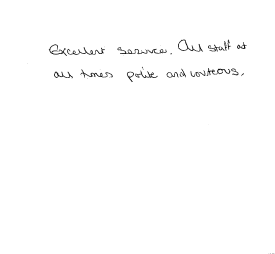 Excellent service. All staff at
all times polite and courteous.